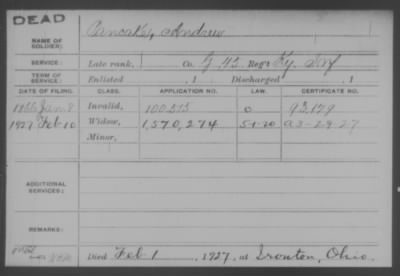 DEAD
NAME OF SOLDIER: Pancake, Andrew
SERVICE: Late rank, Co. G, 45 Reg't Ky. Inf
TERM OF SERVICE: Enlisted , 1 Discharged , 1
DATE OF FILING. CLASS. APPLICATION NO. LAW. CERTIFICATE NO.
1866 Jan. 8 Invalid, 100.515 0 93.129
1927 Feb-10 Widow, 1,570,274 5-1-20 a 3-29-27
Minor,
ADDITIONAL SERVICES:
REMARKS:
Died Feb-1 , 1927, at Ironton, Ohio.